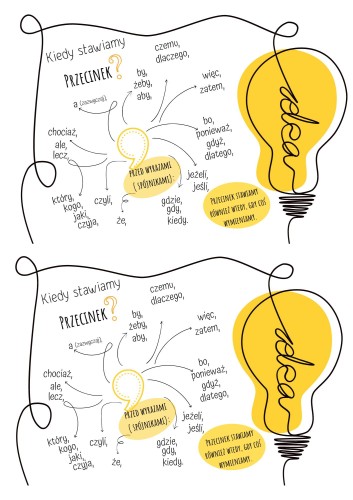 Kiedy stawiamy
PRZECINEK?
czemu,
dlaczego,
by,
żeby,
aby,
więc,
zatem,
a (zazwyczaj),
chociaż,
ale,
lecz,
bo,
ponieważ,
gdyż,
dlatego,
PRZED WYRAZAMI
(SPÓJNIKAMI):
jeżeli,
jeśli,
który,
kogo,
jaki,
czyja,
czyli,
że,
gdzie,
gdy,
kiedy.
PRZECINEK STAWIAMY
RÓWNIEŻ WTEDY, GDY COŚ
WYMIENIAMY.
idea
Kiedy stawiamy
PRZECINEK?
czemu,
dlaczego,
by,
żeby,
aby,
więc,
zatem,
a (zazwyczaj),
chociaż,
ale,
lecz,
bo,
ponieważ,
gdyż,
dlatego,
PRZED WYRAZAMI
(SPÓJNIKAMI):
jeżeli,
jeśli,
który,
kogo,
jaki,
czyja,
czyli,
że,
gdzie,
gdy,
kiedy.
PRZECINEK STAWIAMY
RÓWNIEŻ WTEDY, GDY COŚ
WYMIENIAMY.
idea